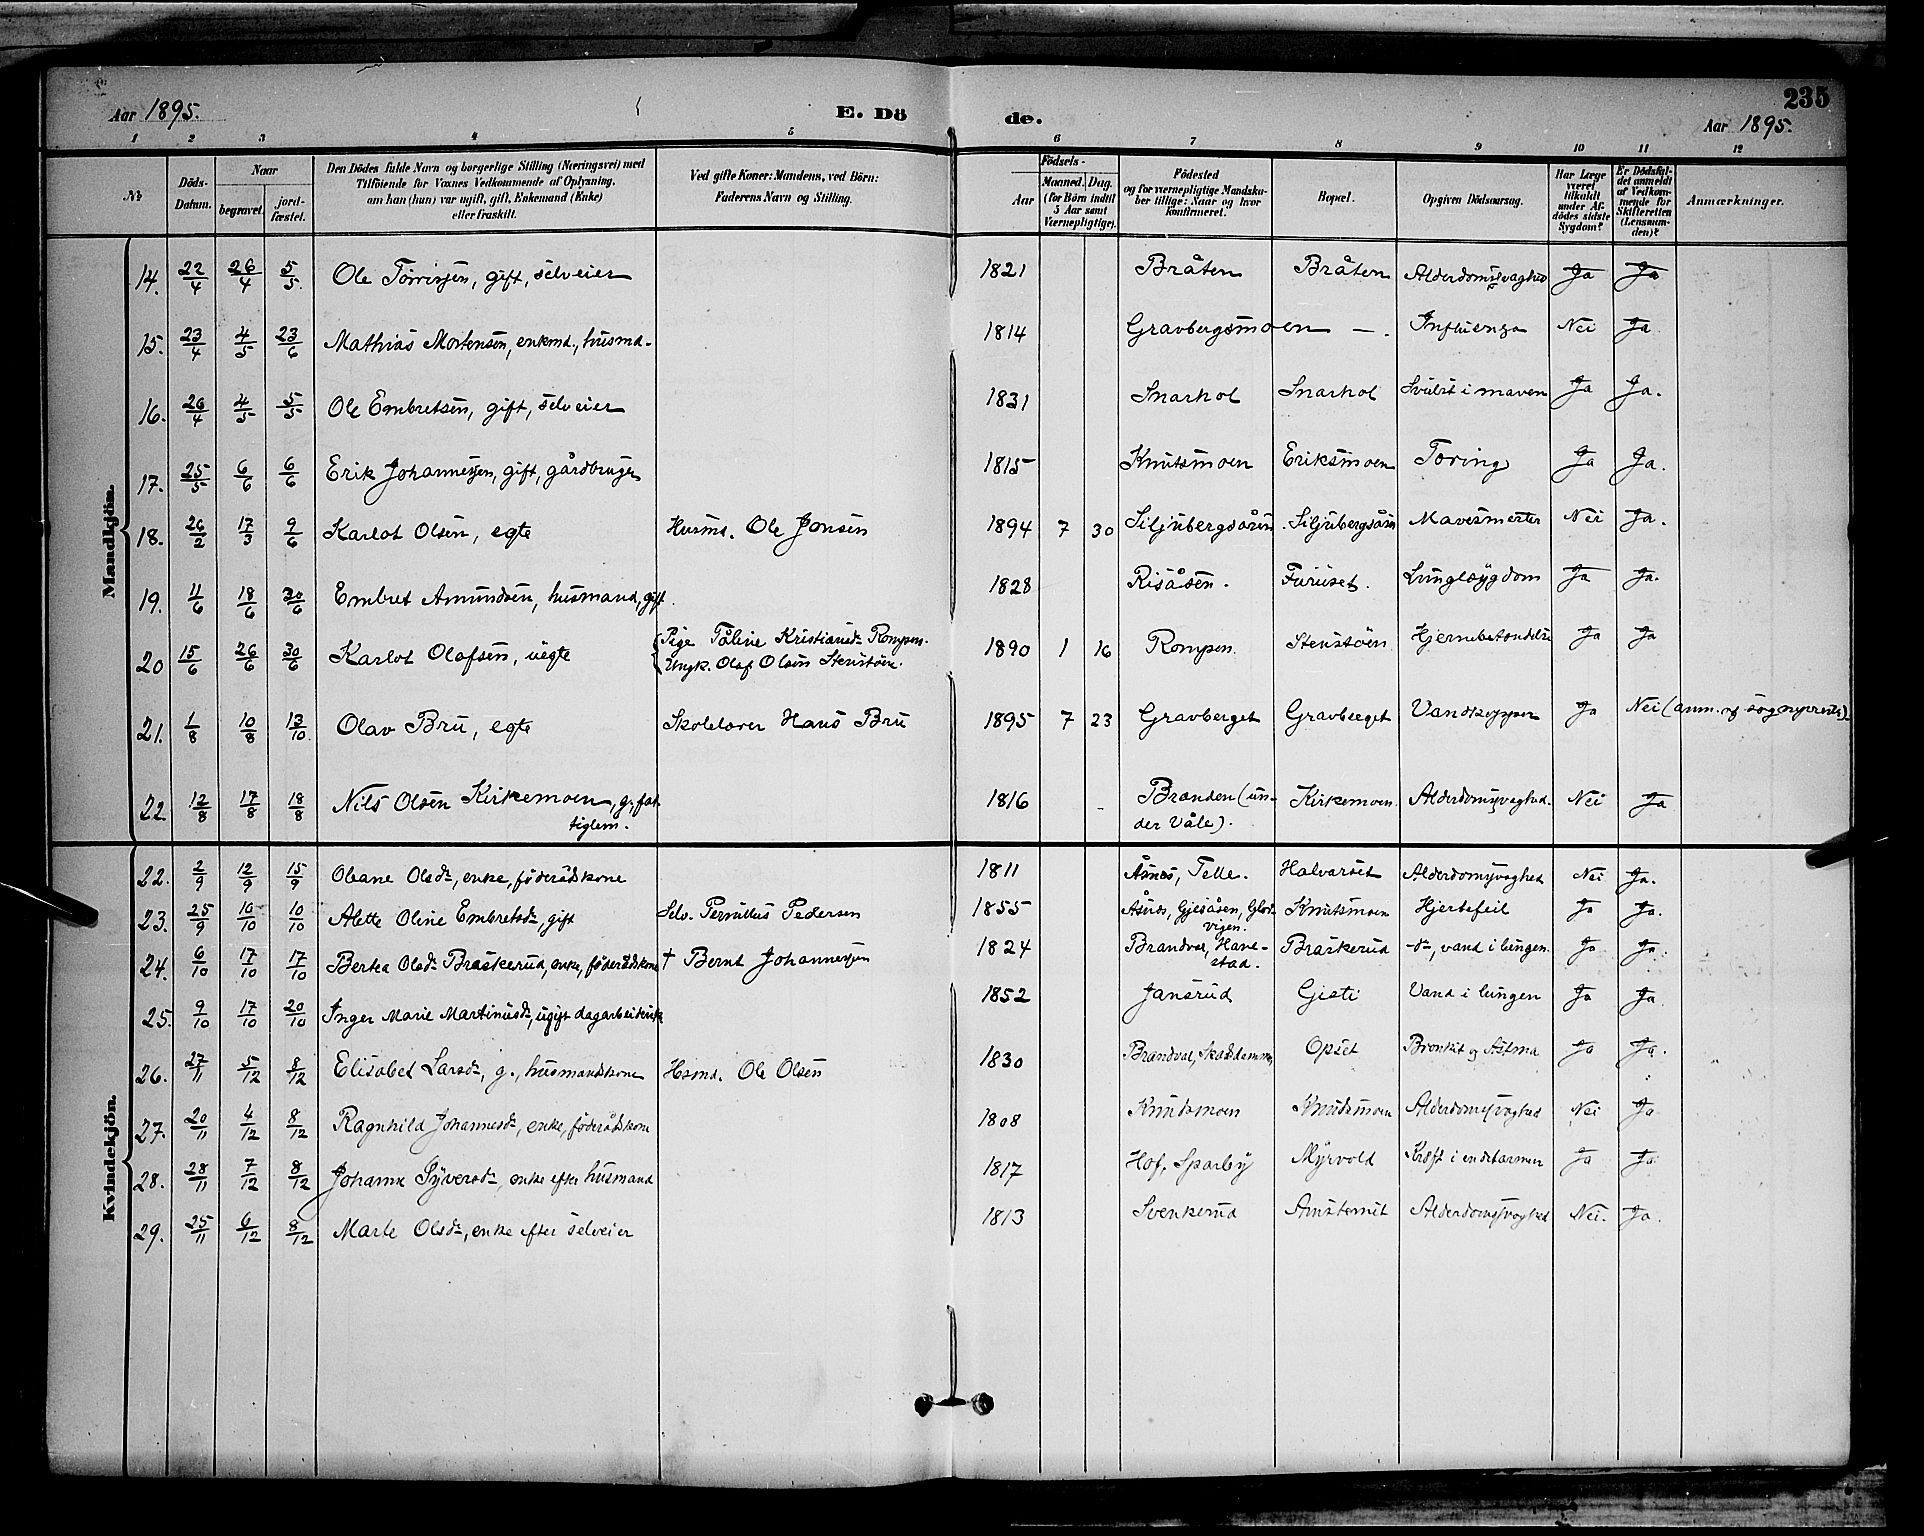 Aar 1895.
E. Dö
de.
235
Aar 1895.
1 2 3 4 5 6 7 8 9 10 11 12
No
Döds-Datum.
Naar
begravet. jordfæstet.
Den Dödes fulde Navn og borgerlige Stilling (Næringsvei) med
Tilföiende for Voxnes Vedkommende af Oplysning,
om han (hun) var ugift, gift, Enkemand (Enke)
eller fraskilt.
Ved gifte Koner: Mandens, ved Börn:
Faderens Navn og Stilling.
Födsels-
Aar Maaned. Dag.
(for Börn indtil 5 Aar samt Værnepligtige).
Födested
og for værnepligtige Mandskaber tillige: Naar og hvor konfirmeret.
Bopæl.
Opgiven Dödsaarsag.
Har Læge været tilkaldt under Afdödes sidste Sygdom?
Er Dödsfaldet anmeldt af Vedkommende for Skifteretten (Lensmanden)?
Anmærkninger.
Mandkjön.
14. 22/4 26/4 5/5 Ole Torrisen, gift, selveier 1821 Bråten Bråten Alderdomssvaghed Ja Ja
15. 23/4 4/5 23/6 Mathias Mortensen, enkmd., husmd. 1814 Gravbergsmoen — . Influenza Nei Ja
16. 26/4 4/5 5/5 Ole Embretsen, gift, selveier 1831 Snarhol Snarhol Svulst i maven Ja Ja.
17. 25/5 6/6 6/6 Erik Johannessen, gift, gårdbruger 1815 Knutsmoen Eriksmoen Tæring Ja Ja.
18. 26/2 17/3 9/6 Karlot Olsen, egte Husmd. Ole Jonsen 1894 7 30 Siljubergsåsen Siljubergsåsen Mavesmerter Nei Ja.
19. 11/6 18/6 30/6 Embret Amundsen, husmand, gift. 1828 Risåsen. Furuset. Lungesygdom Ja Ja.
20 15/6 26/6 30/6 Karlot Olafsen, uegte Pige Tåline Kristiansd. Rompen.
Ungk. Olaf Olsen Stenstøen. 1890 1 16 Rompen Stenstøen Hjernebetændelse Ja Ja
21. 1/8 10/8 13/10 Olav Bru, egte Skolelærer Hans Bru 1895 7 23 Gravberget Gravberget Vandkopper Ja Nei (anm. af sognepresten)
22 12/8 17/8 18/8 Nils Olsen Kirkemoen, g., fattiglem. 1816 Branden (under Våle). Kirkemoen. Alderdomssvaghed. Nei Ja
Kvindekjön.
22. 2/9 12/9 15/9 Oleane Olsdr, enke, føderådskone 1811 Åsnes, Telle. Halvorset Alderdomssvaghed Nei Ja.
23. 25/9 10/10 10/10 Alette Oline Embretsdr, gift Selv. Pernillus Pedersen 1855 Åsnes, Gjesåsen, Glodvigen. Knutsmoen Hjertefeil Ja Ja.
24. 6/10 17/10 17/10 Bertea Olsdr Braskerud, enke, føderådskone † Bernt Johannessen 1824 Brandval, Hanestad. Braskerud –dr, vand i lungen. Ja Ja.
25. 9/10 17/10 20/10 Inger Marie Martinusdr, ugift dagarbeiderske 1852 Jansrud Gjesti Vand i lungen Ja Ja
26. 27/11 5/12 8/12 Elisabet Larsdr, g., husmandskone Hsmd. Ole Olsen 1830 Brandval, Opset Bronkit og Astma Ja Ja.
27. 20/11 4/12 8/12 Ragnhild Johannesdr, enke, føderådskone 1808 Knudsmoen Knudsmoen Alderdomssvaghed Nei Ja
28. 28/11 7/12 8/12 Johanne Syversdr, enke efter husmand 1817 Hof, Sparby Myrvold Kræft i endetarmen Ja Ja
29. 25/11 6/12 8/12 Marte Olsdr, enke efter selveier 1813 Svenkerud Alderdomssvaghed Nei. Ja.